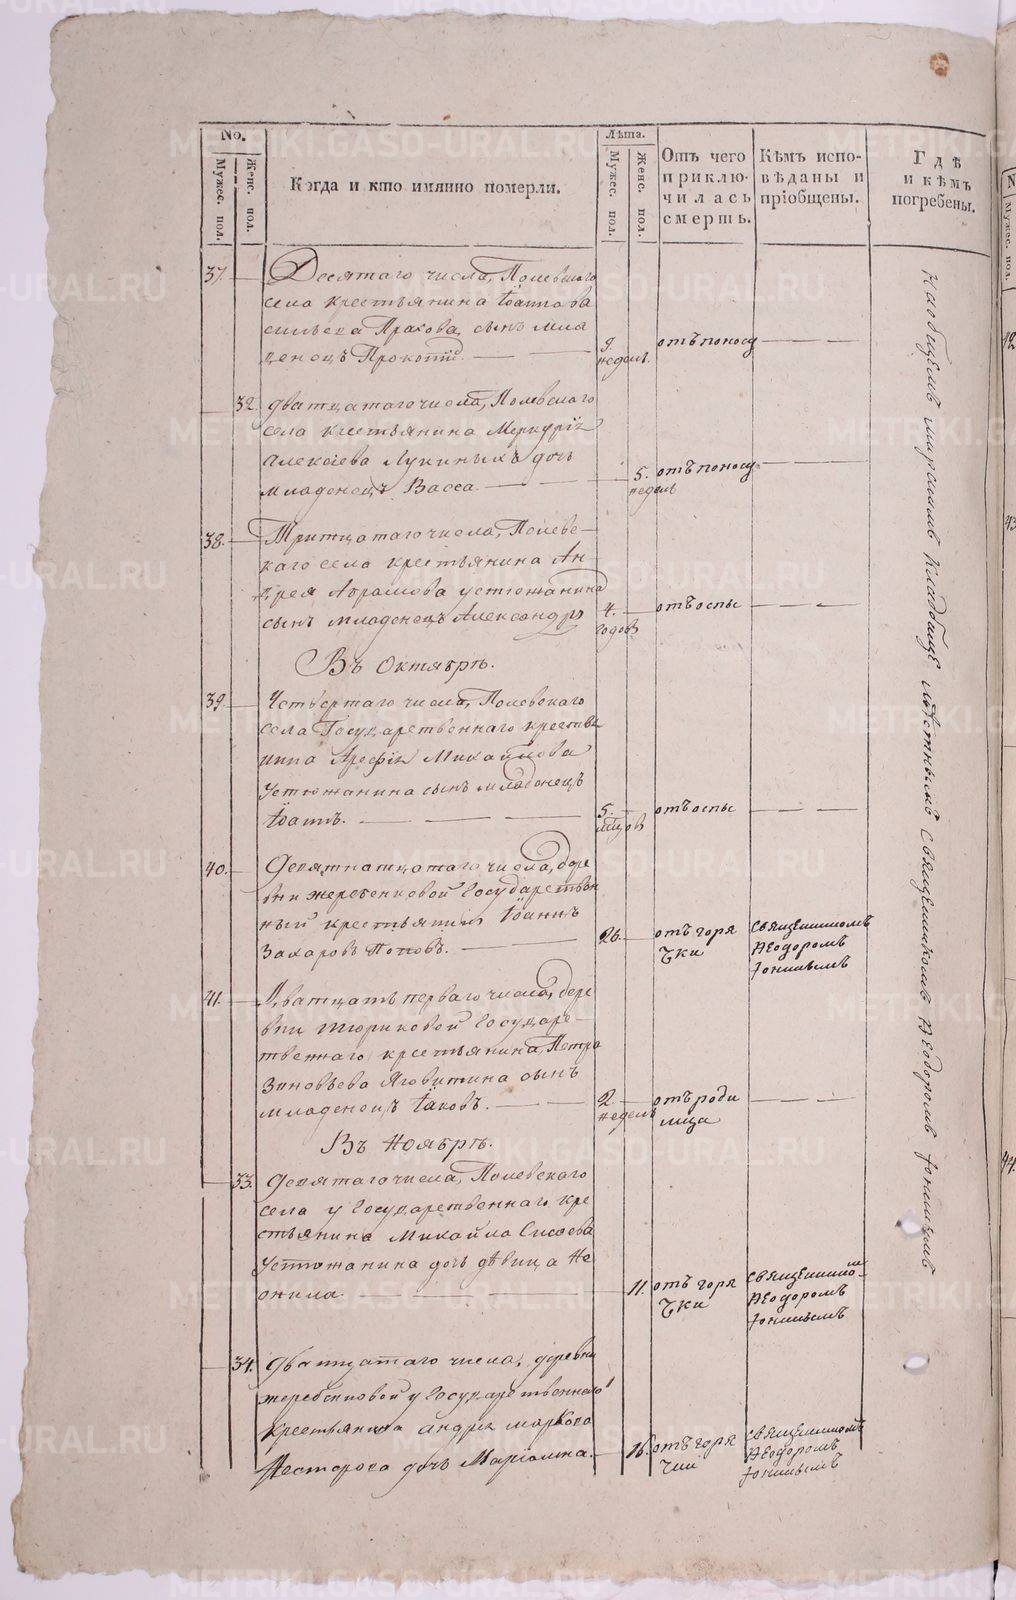 No.
Мужес. пол.
Женс. пол.
Когда и кто имянно померли.
Лѣта.
Мужес. пол.
Женс. пол.
Отъ чего
приклю-
чилась
смерть.
Кѣмъ испо-
вѣданы и
пріобщены.
Гдѣ
и кѣмъ
погребены.
37. Десятаго числа, Полевскаго
села крестьянина Іоанна Ва
сильева Прахова, сынъ мла
денецъ Прокопій.
9.
недель.
отъ поносу
32. Дватцатаго числа, Полевскаго
села крестьянина Меркурія
Алексіева Лукиныхъ дочь
младенецъ Васса.
5.
недель
отъ поносу
38. Тритцатаго числа, Полевс-
каго села крестьянина Ан-
дрея Абрамова Устюжанина
сынъ младенецъ Александръ
4.
годовъ
отъ оспы
Въ Октябрѣ.
39. Четвертаго числа, Полевскаго
села Государственнаго крестья
нина Арефія Михайлова
Устюжанина сынъ младенецъ
Іоаннъ.
5.
мцовъ
отъ оспы
40. Девятнатцатаго числа, дере
вни Жеребенковой Государствен
ный крестьянинъ Іоаннъ
Захаровъ Поповъ.
26.
отъ горя
чки
Священникомъ
Ѳеодоромъ
Іонинымъ
41. Дватцать перваго числа, дере
вни Тюриковой Государс-
твеннаго крестьянина, Петра
Зиновьева Яговитина сынъ
младенецъ Іаковъ.
2.
недель
отъ роди
мца
Въ Ноябрѣ.
33. Девятаго числа, Полевскаго
села у Государственнаго кре
стьянина Михайла Сисоева
Устюжанина дочь дѣвица Не
онила.
11.
отъ горя
чки
Священникомъ
Ѳеодоромъ
Іонинымъ
34. Дватцатаго числа, деревни
Жеребенковой у Государственнаго
крестьянина Андрея Маркова
Нестерова дочь Маріамна.
16.
отъ горя
чки
Священникомъ
Ѳеодоромъ
Іонинымъ
На общемъ мирскимъ кладбищѣ мѣстнымъ Священникомъ Ѳеодоромъ Іонинымъ
METRIKI.GASO-URAL.RU